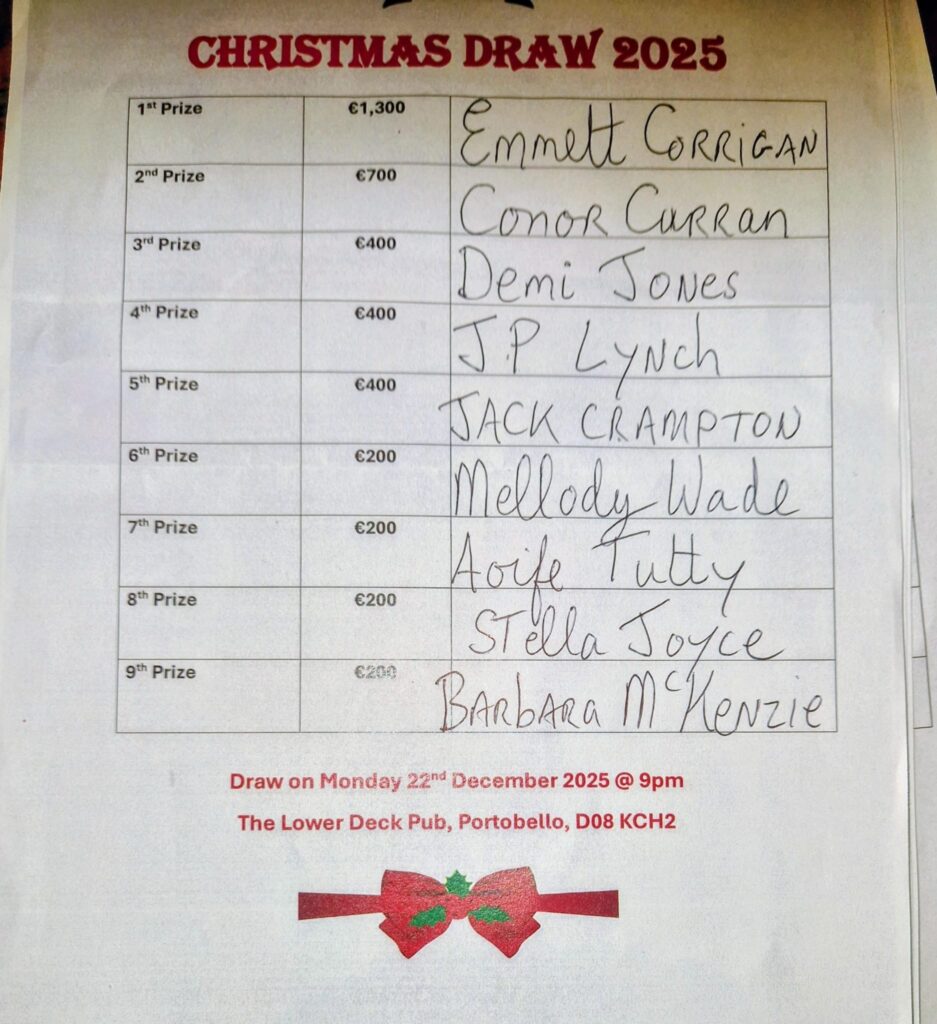 CHRISTMAS DRAW 2025
1st Prize €1,300 Emmett CORRIGAN
2nd Prize €700 CONOR CURRAN
3rd Prize €400 Demi JONES
4th Prize €400 J.P LYNCH
5th Prize €400 JACK CRAMPTON
6th Prize €200 Mellody Wade
7th Prize €200 Aoife Tutty
8th Prize €200 STella Joyce
9th Prize €200 BARbARA McKenzie
Draw on Monday 22nd December 2025 @ 9pm
The Lower Deck Pub, Portobello, D08 KCH2